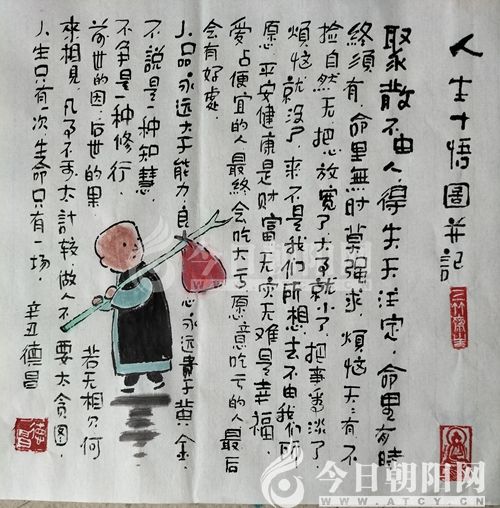 人生十悟圖并記
聚散不由人得失天注定,命里有時
終须有,命里無时莫强求,煩惱天天有不
捡自然无,把心放寬了大事就小了,把事看淡了
煩惱就没了,来不是我们所想,去不由我们所
愿,平安健康是财富,无灾无难是幸福,
爱占便宜的人最終会吃大亏,愿意吃亏的人最后
会有好處
人品永远大于能力,良心永远貴于黄金,
不说是一种知慧
不争是一种修行,
前世的因,后世的果 若无相欠何
來相見,凡事不要太计較,做人不要太贪图
人生只有一次,生命只有一场.辛丑德昌
德昌
今日朝阳网
WWW.ATCY.CN
今日朝阳网
WWW.ATCY.CN